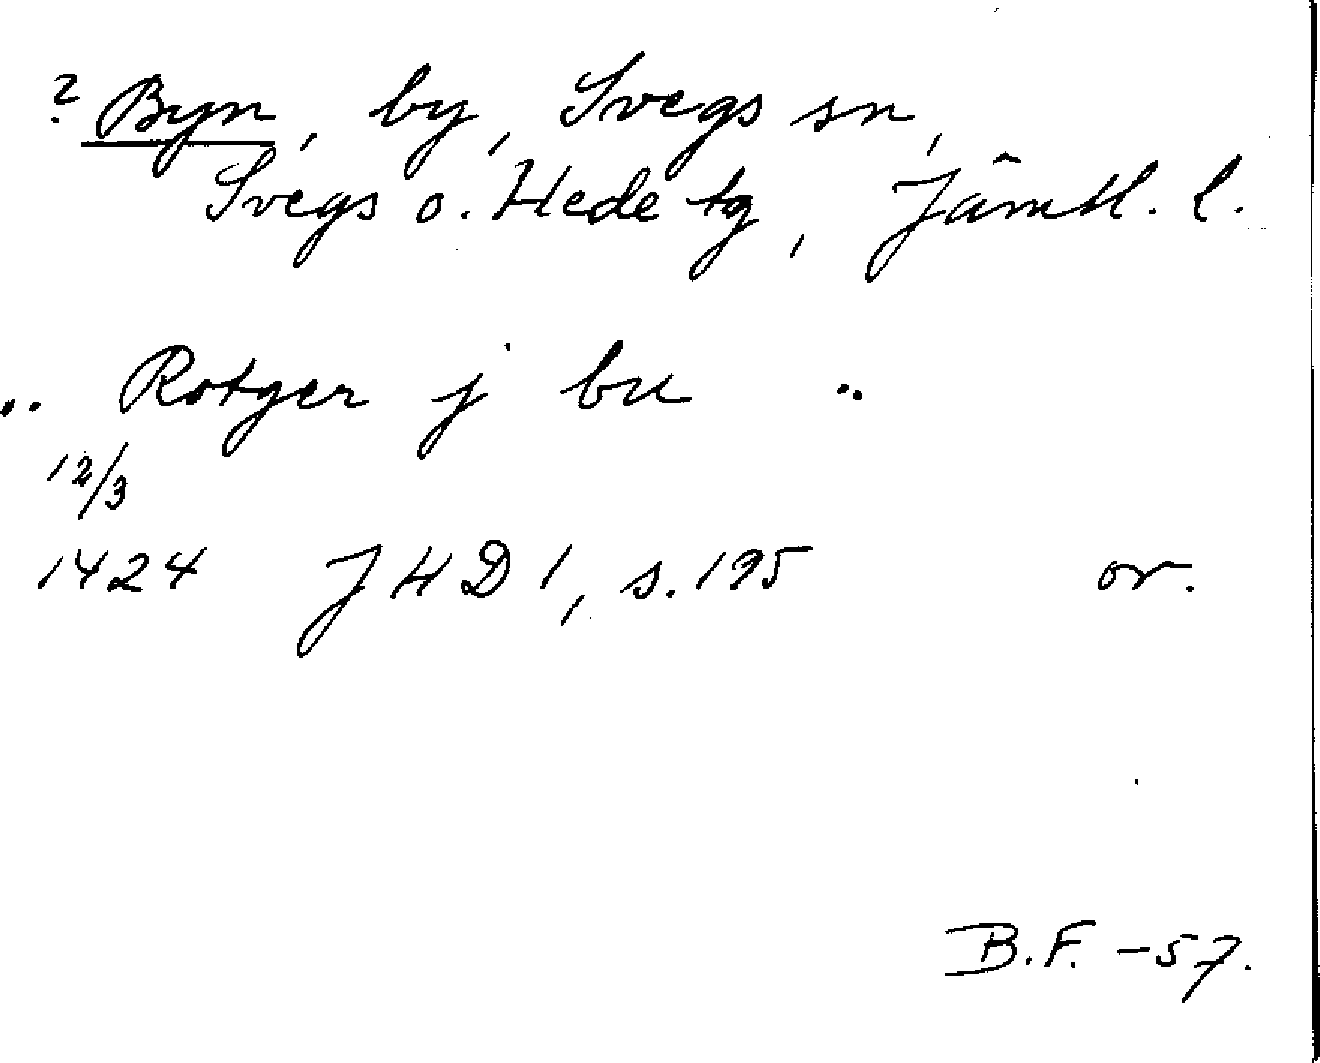 ? Byn, by, Svegs sn,
Svegs o. Hede tg, Jämtl. l.
.. Rotger j bu ..
12/3
1424 JHD 1, s. 195 or.
B.F. -57.